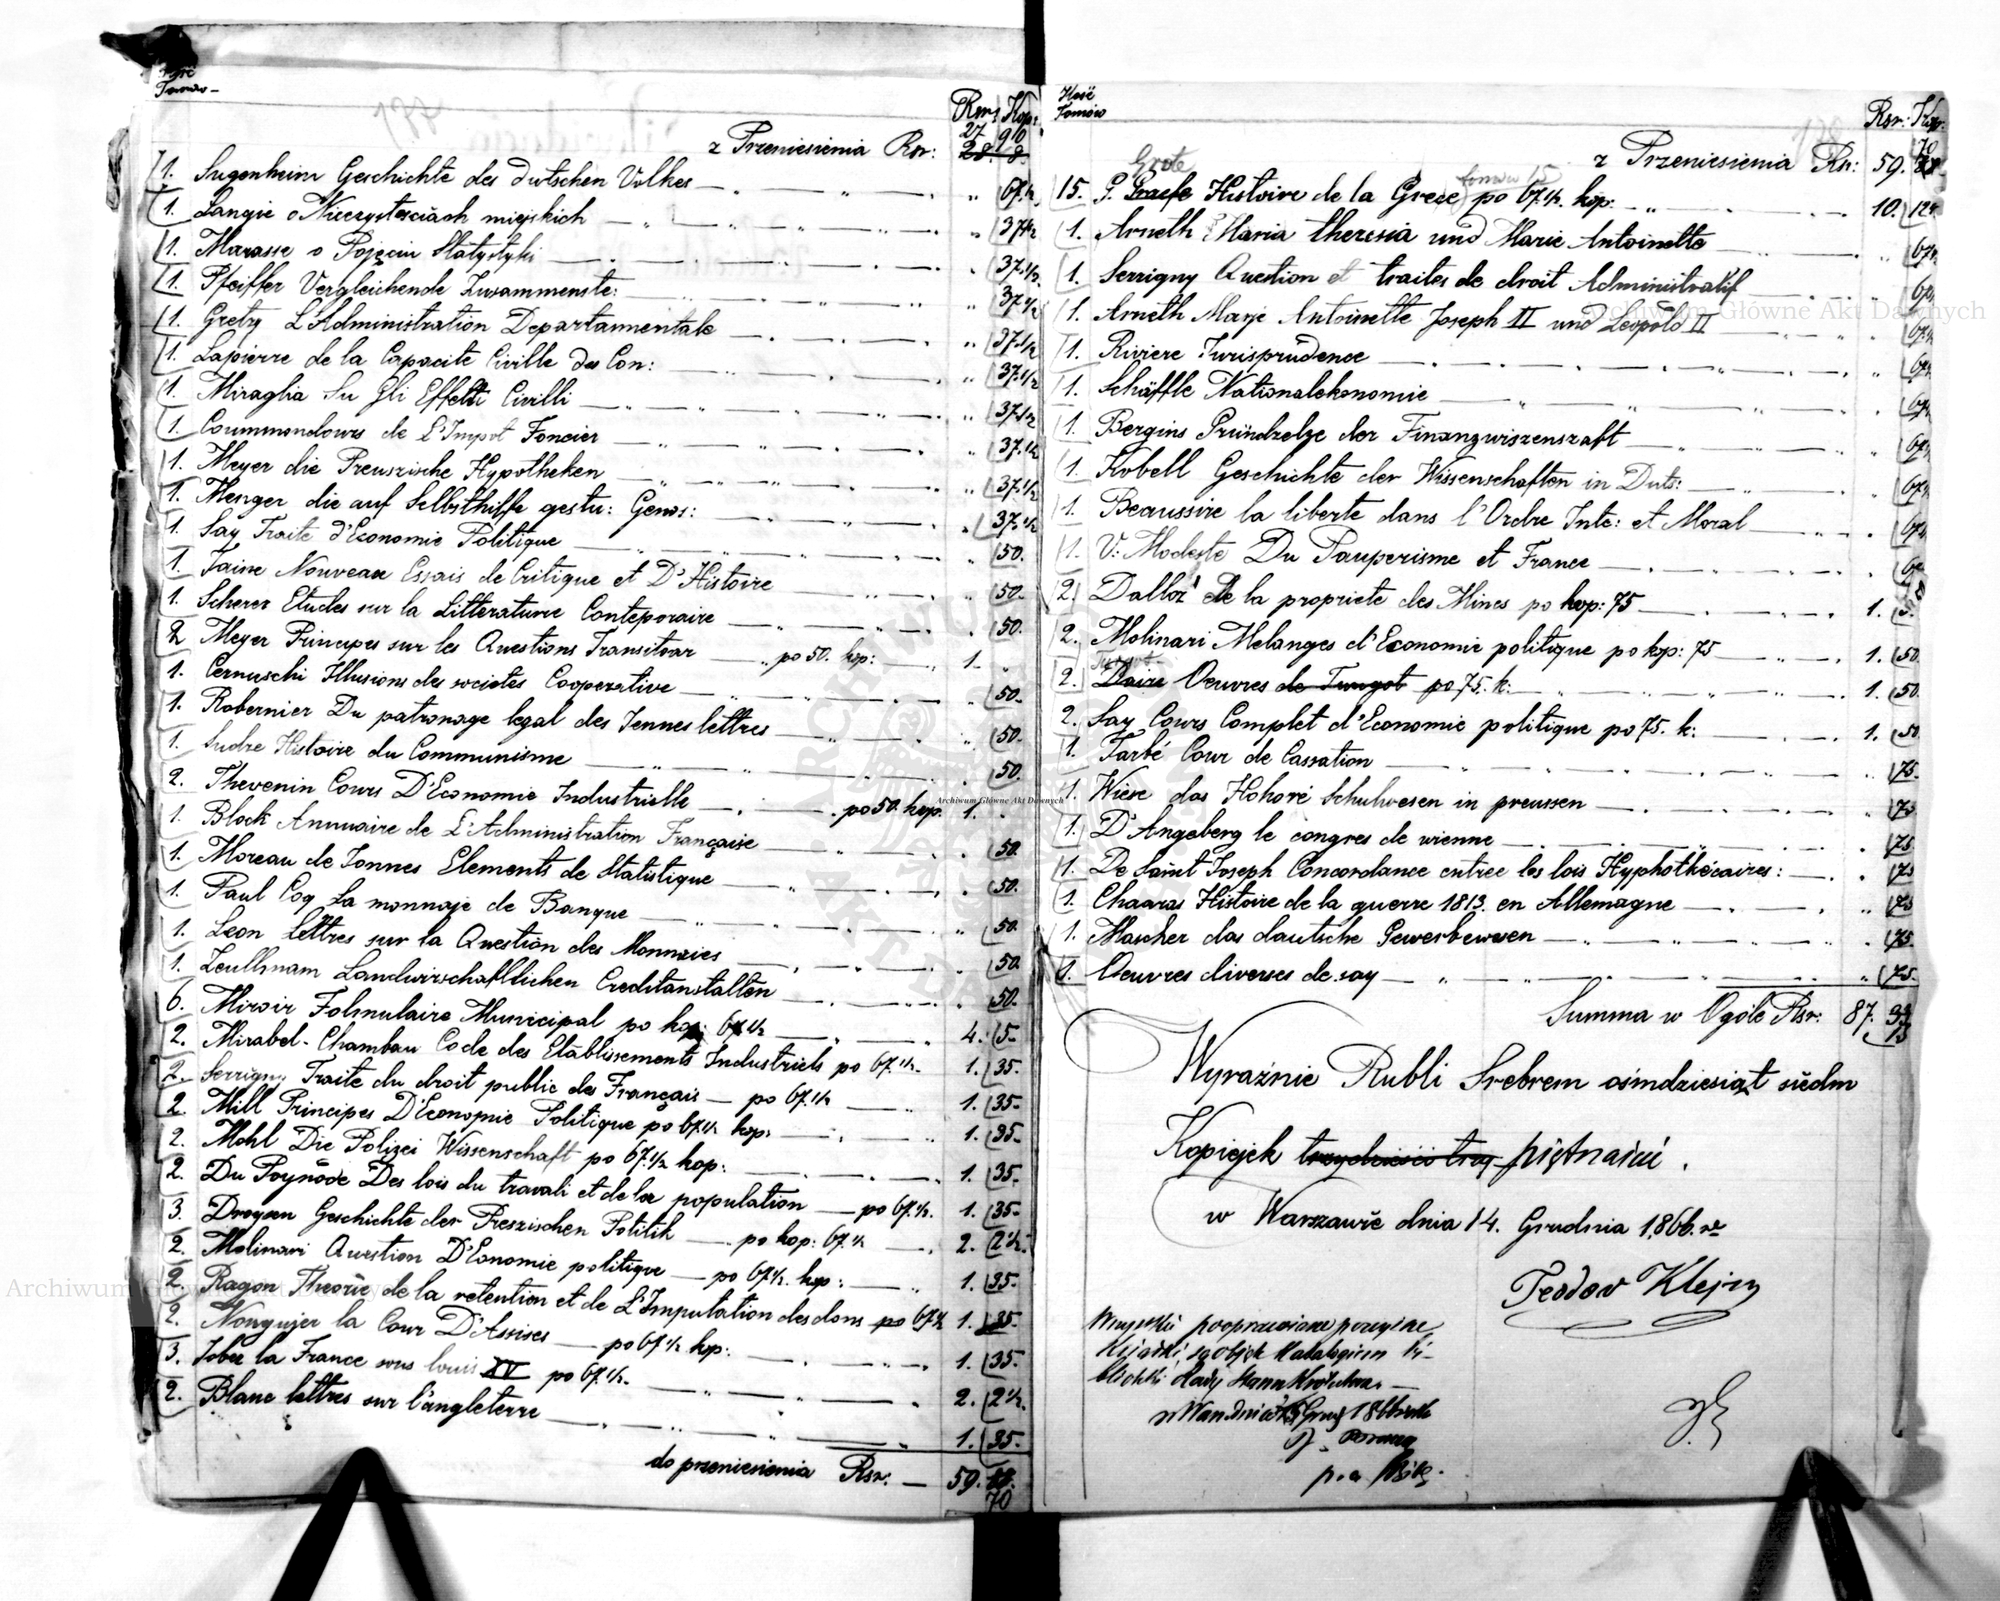 Tomów
177
Rsr: Kop:
27 90
z Przeniesienia Rsr: 28. 8.
1. Sugenheim Geschichte des dutschen Volkes — " — " — " 67.½
1. Langie o Nieczystościach miejskich — " — " 37½
1. Marasse o Pojęciu Statystyki — " 37.½
1. Pfeiffer Vergleichende Zusammenste: — " 37.½
1. Gretry L'Administration Departamentale — " 37.½
1. Lapierre de la Capacite Civille des Con: — " 37.½
1. Miraglia Su Gli Effetti Civilli — " 37.½
1. Coummondours de L'Impot Foncier — " 37.½
1. Meyer die Preuszische Hypotheken — " 37.½
1. Menger die auf Selbsthilfe gestu: Genos: — " 37.½
1. Say Traite d'Economie Politique — " 50.
1. Taine Nouveau Essais de Critique et D'Histoire — " 50.
1. Scherer Etudes sur la Litterature Conteporaire — " 50.
2 Meyer Principes sur les Questions Transitoar — po 50. kop: — 1. "
1. Cernuschi Illusions des societes Cooperative — " 50.
1. Robernier Du patronage legal des Jennes lettres — " 50.
1. Sudre Histoire du Communisme — " 50.
2. Thevenin Cours D'Economie Industrielle — po 50. kop. 1. "
1. Block Annuaire de L'Administration Française — " 50.
1. Moreau de Jonnes Elements de Statistique — " 50.
1. Paul Coq La monnaje de Banque — " 50.
1. Leon Lettres sur la Question des Monnaies — " 50.
1. Zeullmam Landwirschaftlichen Creditanstalten — " 50.
6. Miroir Folmulaire Municipal po kop: 67½ — 4. 5.
2. Mirabel-Chambau Code des Etablissements Industriels po 67.½. 1. 35.
2. Serrigny Traite du droit public des Français — po 67.½ — 1. 35.
2. Mill Principes D'Economie Politique po 67.½ kop: — 1. 35.
2. Mohl Die Polizei Wissenschaft po 67.½ kop: — 1. 35.
2. Du Poynode Des lois du travali et de la population — po 67.½. 1. 35.
3. Droysen Geschichte der Preszischen Politik — po kop: 67.½ — 2. 2½.
2. Molinari Question D'Economie politique — po 67.½. kop: — 1. 35.
2. Ragon Theorie de la retention et de L'Imputation des dons po 67½ 1. 35.
2. Nougujer la Cour D'Assises — po 67½ kop: — 1. 35.
3. Jobez la France sous louis XV po 67.½. — 2. 2½.
2. Blanc lettres sur l'angleterre — 1. 35.
do przeniesienia Rsr. — 59.
70
Ilość
Tomów
178
Rsr: Kop:
70
z Przeniesienia Rsr: 59.
Grote
tomów 15
15. G. Graefe Histoire de la Grece po 67.½. kop. — 10. 12½.
1. Arneth Maria theresia und Marie Antoinette — 67½
1. Serrigny Question et traites de droit Administratif — 67½
1. Arneth Marje Antoinette Joseph II und Leopold II — 67½
1. Riviere Jurisprudence — 67½
1. Schäffle Nationalekonomie — 67½
1. Bergius Gründzelge der Finanzwiszenszaft — 67½
1. Kobell Geschichte der Wissenschaften in Duts: — 67½
1. Beaussire la liberte dans l'Ordre Inte: et Moral — 67½
1. V: Modeste Du Pauperisme et France — 67½
2. Dalloz de la propriete des Mines po kop: 75 — 1. 50
2. Molinari Melanges d'Economie politique po kop: 75 — 1. 50
Turgot
2. Daire Oeuvres de Turgot po 75. k: — 1. 50
2. Say Cours Complet d'Economie politique po 75. k: — 1. 50
1. Tarbé Cour de Cassation — 75.
1. Wiese das Hohoré Schulwesen in preussen — 75
1. D'Angeberg le congres de wienne — 75
1. De Saint Joseph Concordance entree les lois Hyphothécaires: — 75
1. Chaaras Histoire de la guerre 1813. en Allemagne — 75
1. Mascher das dautsche Gewerbewesen — 75.
1. Oeuvres diverses de say — 75.
Summa w Ogóle Rsr: 87. 33
15
Wyraźnie Rubli Srebrem ośmdziesiąt siedm
Kopiejek trzydzieści trzy piętnaście.
w Warszawie dnia 14. Grudnia 1866. r
Teodor Klejn